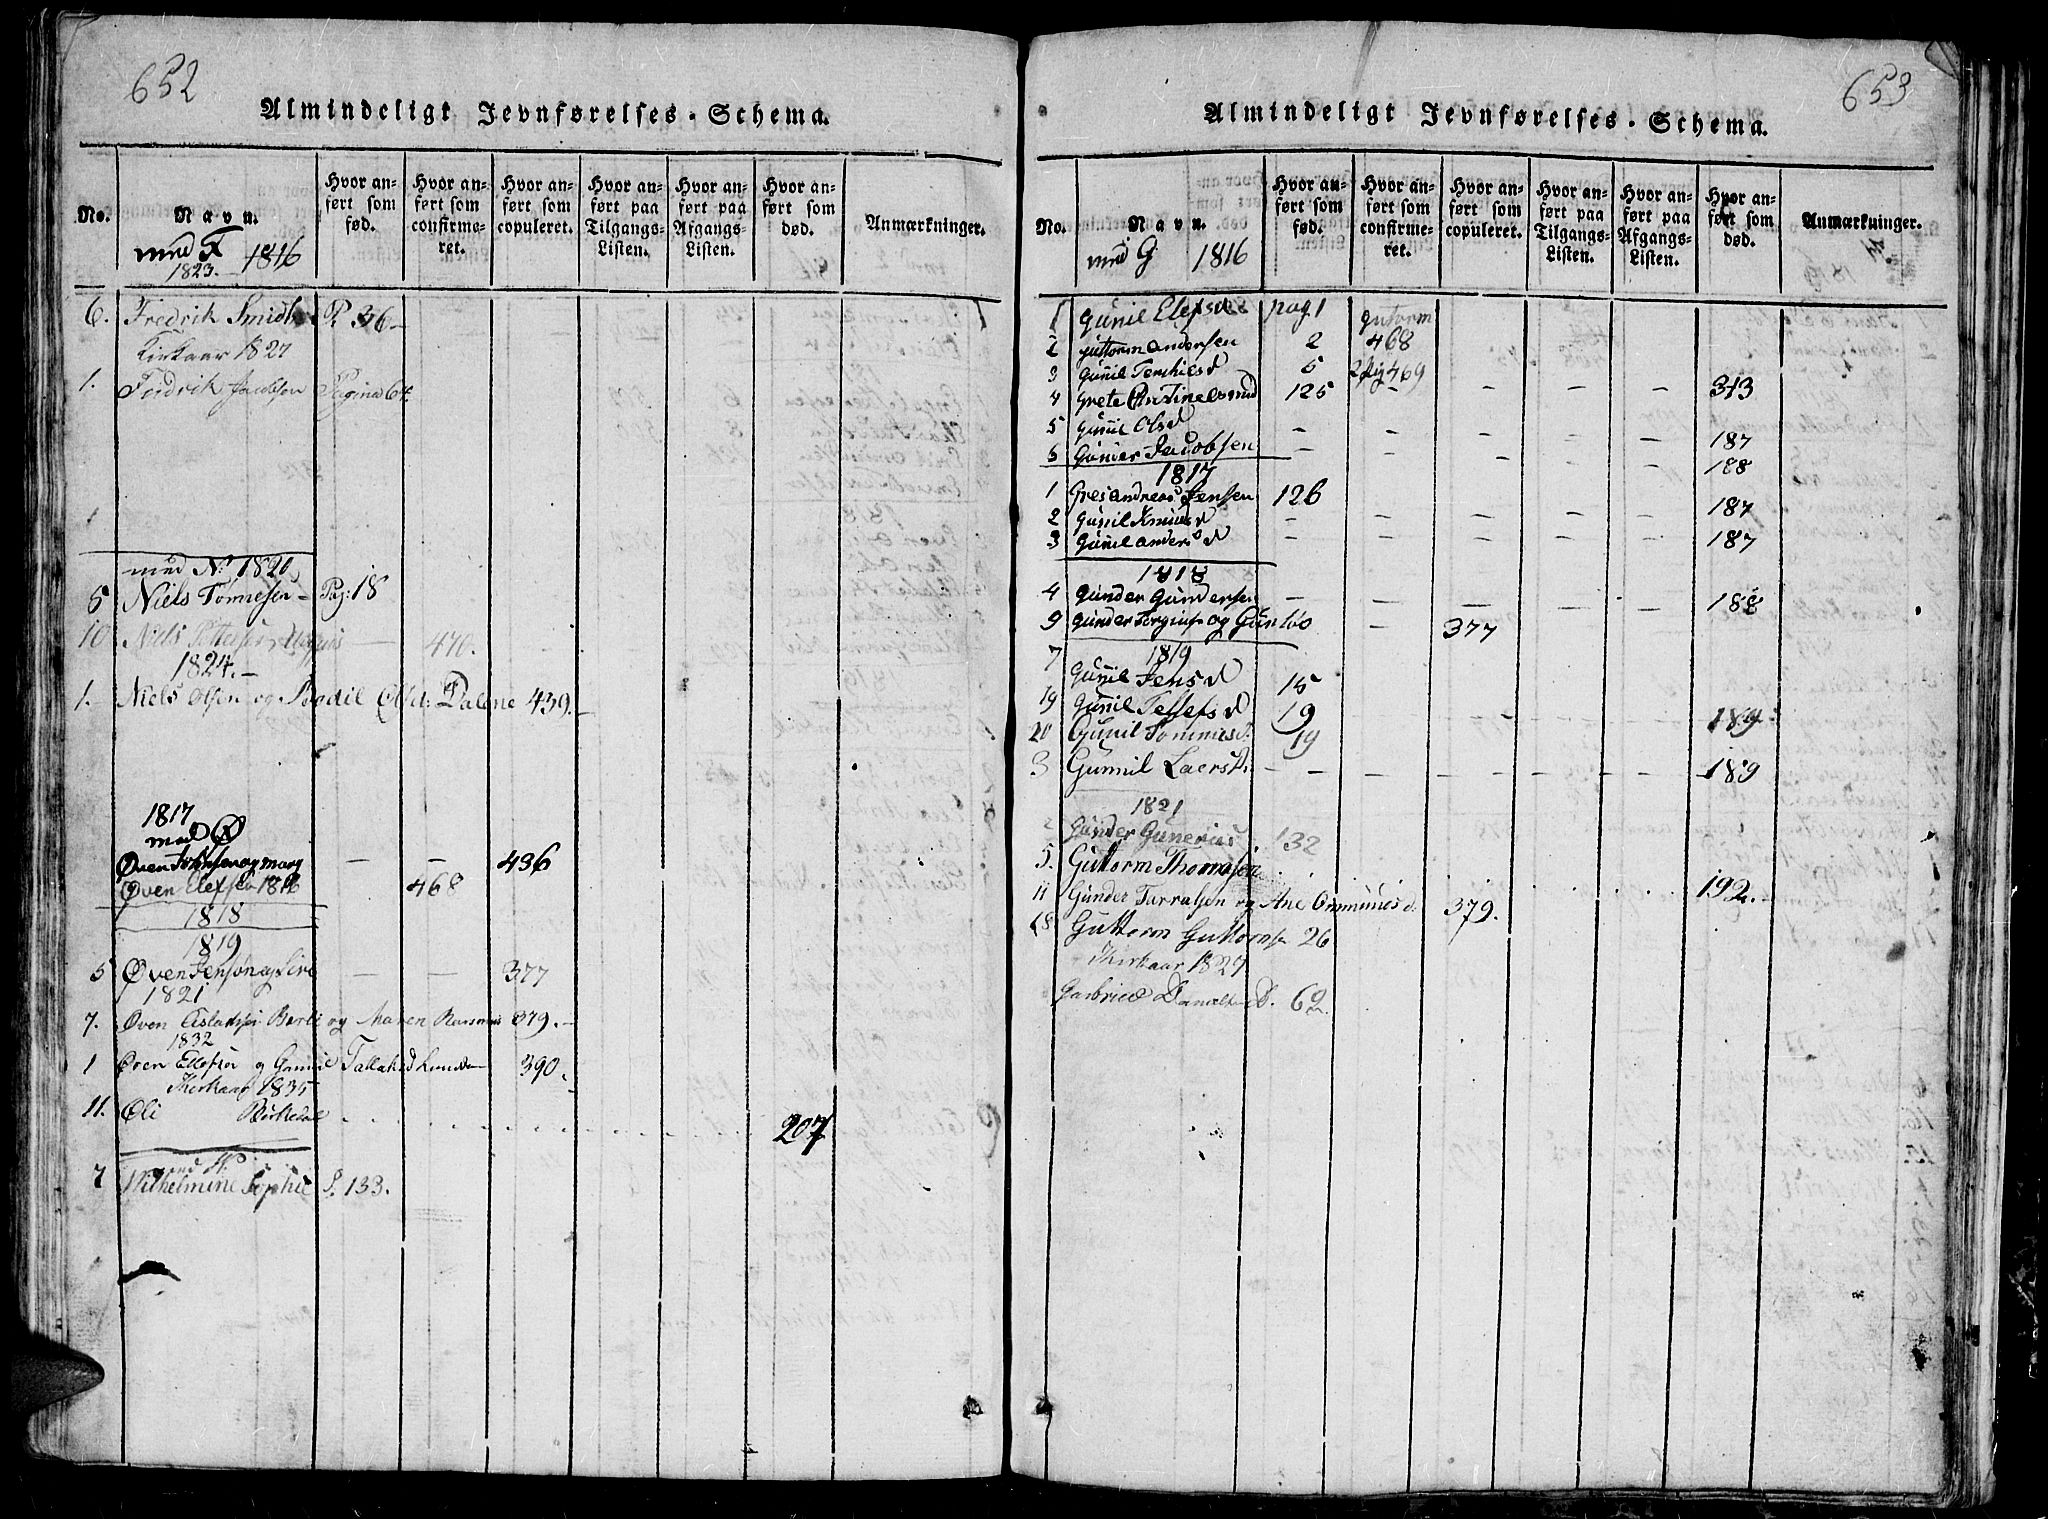 652
Almindeligt Jevnførelses-Schema.
No.
Navn.
Hvor anført som fød.
Hvor anført som confirmeret.
Hvor anført som copuleret.
Hvor anført paa Tilgangs-Listen.
Hvor anført paa Afgangs-Listen.
Hvor anført som død.
Anmærkninger.
med F
1823. 1816
6. Fredrik Smidt P. 36
Kirkaar 1827
1. Fredrik Jacobsen Pagina 64
med N. 1820
5 Niels Tønnesen Pag: 18
10 Niels 470.
1824.
1. Niels Olsen og Bodil Olsd: Dalene 439.
1817
med Ø
Øven og marg — — 436
Øven Elefsen 1816 468
1818
1819
5 Øven Jensøn og Siri — — 377
1821
7. Øven og Maren 379.
1832
1 Øven Ellefsen og Gunnil 390.
Kirkaar 1835
11. Øli 207
med W.
7 Wilhelmine Sophie P. 133.
653
Almindeligt Jevnførelses-Schema.
No.
Navn.
Hvor anført som fød.
Hvor anført som confirmeret.
Hvor anført som copuleret.
Hvor anført paa Tilgangs-Listen.
Hvor anført paa Afgangs-Listen.
Hvor anført som død.
Anmærkninger.
med G 1816
1 Gunil Elefsd pag. 1 gutorm
2 guttorm andersen 2 468
3 Gunil Terchilsd 5 469
4 Grete 125 — — — — 313
5 Gunil Olsd — — — — — 187
6 Gunder Jacobsen — — — — — 188
1817
1 Jensen 126
2 Gunil Knudsd — — — — — 187
3 Gunil andersd — — — — — 187
1818
4 Gunder Gundersen — — — — — 188
9 Gunder og — 377
1819
7 Gunil Jensd 15
19 Gunil Tellefsd 19
20 Gunil Tommesd. 19 — — — — — 189
3 Gunnil Laersd. — — — — — — 189
1821
2 Gunder Gunerius 132
5. Guttorm Thomasen 192.
11 Gunder Tarralsen og Ane 379.
18. Guttorm Guttormsen 26
Kirkaar 1827
Gabriel 62